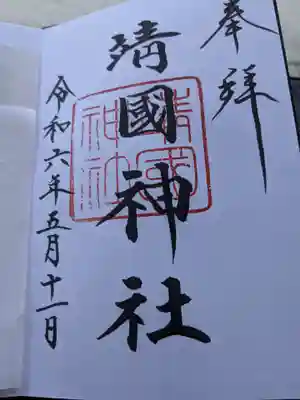 奉拝
靖國神社
靖國神社
令和六年五月十一日